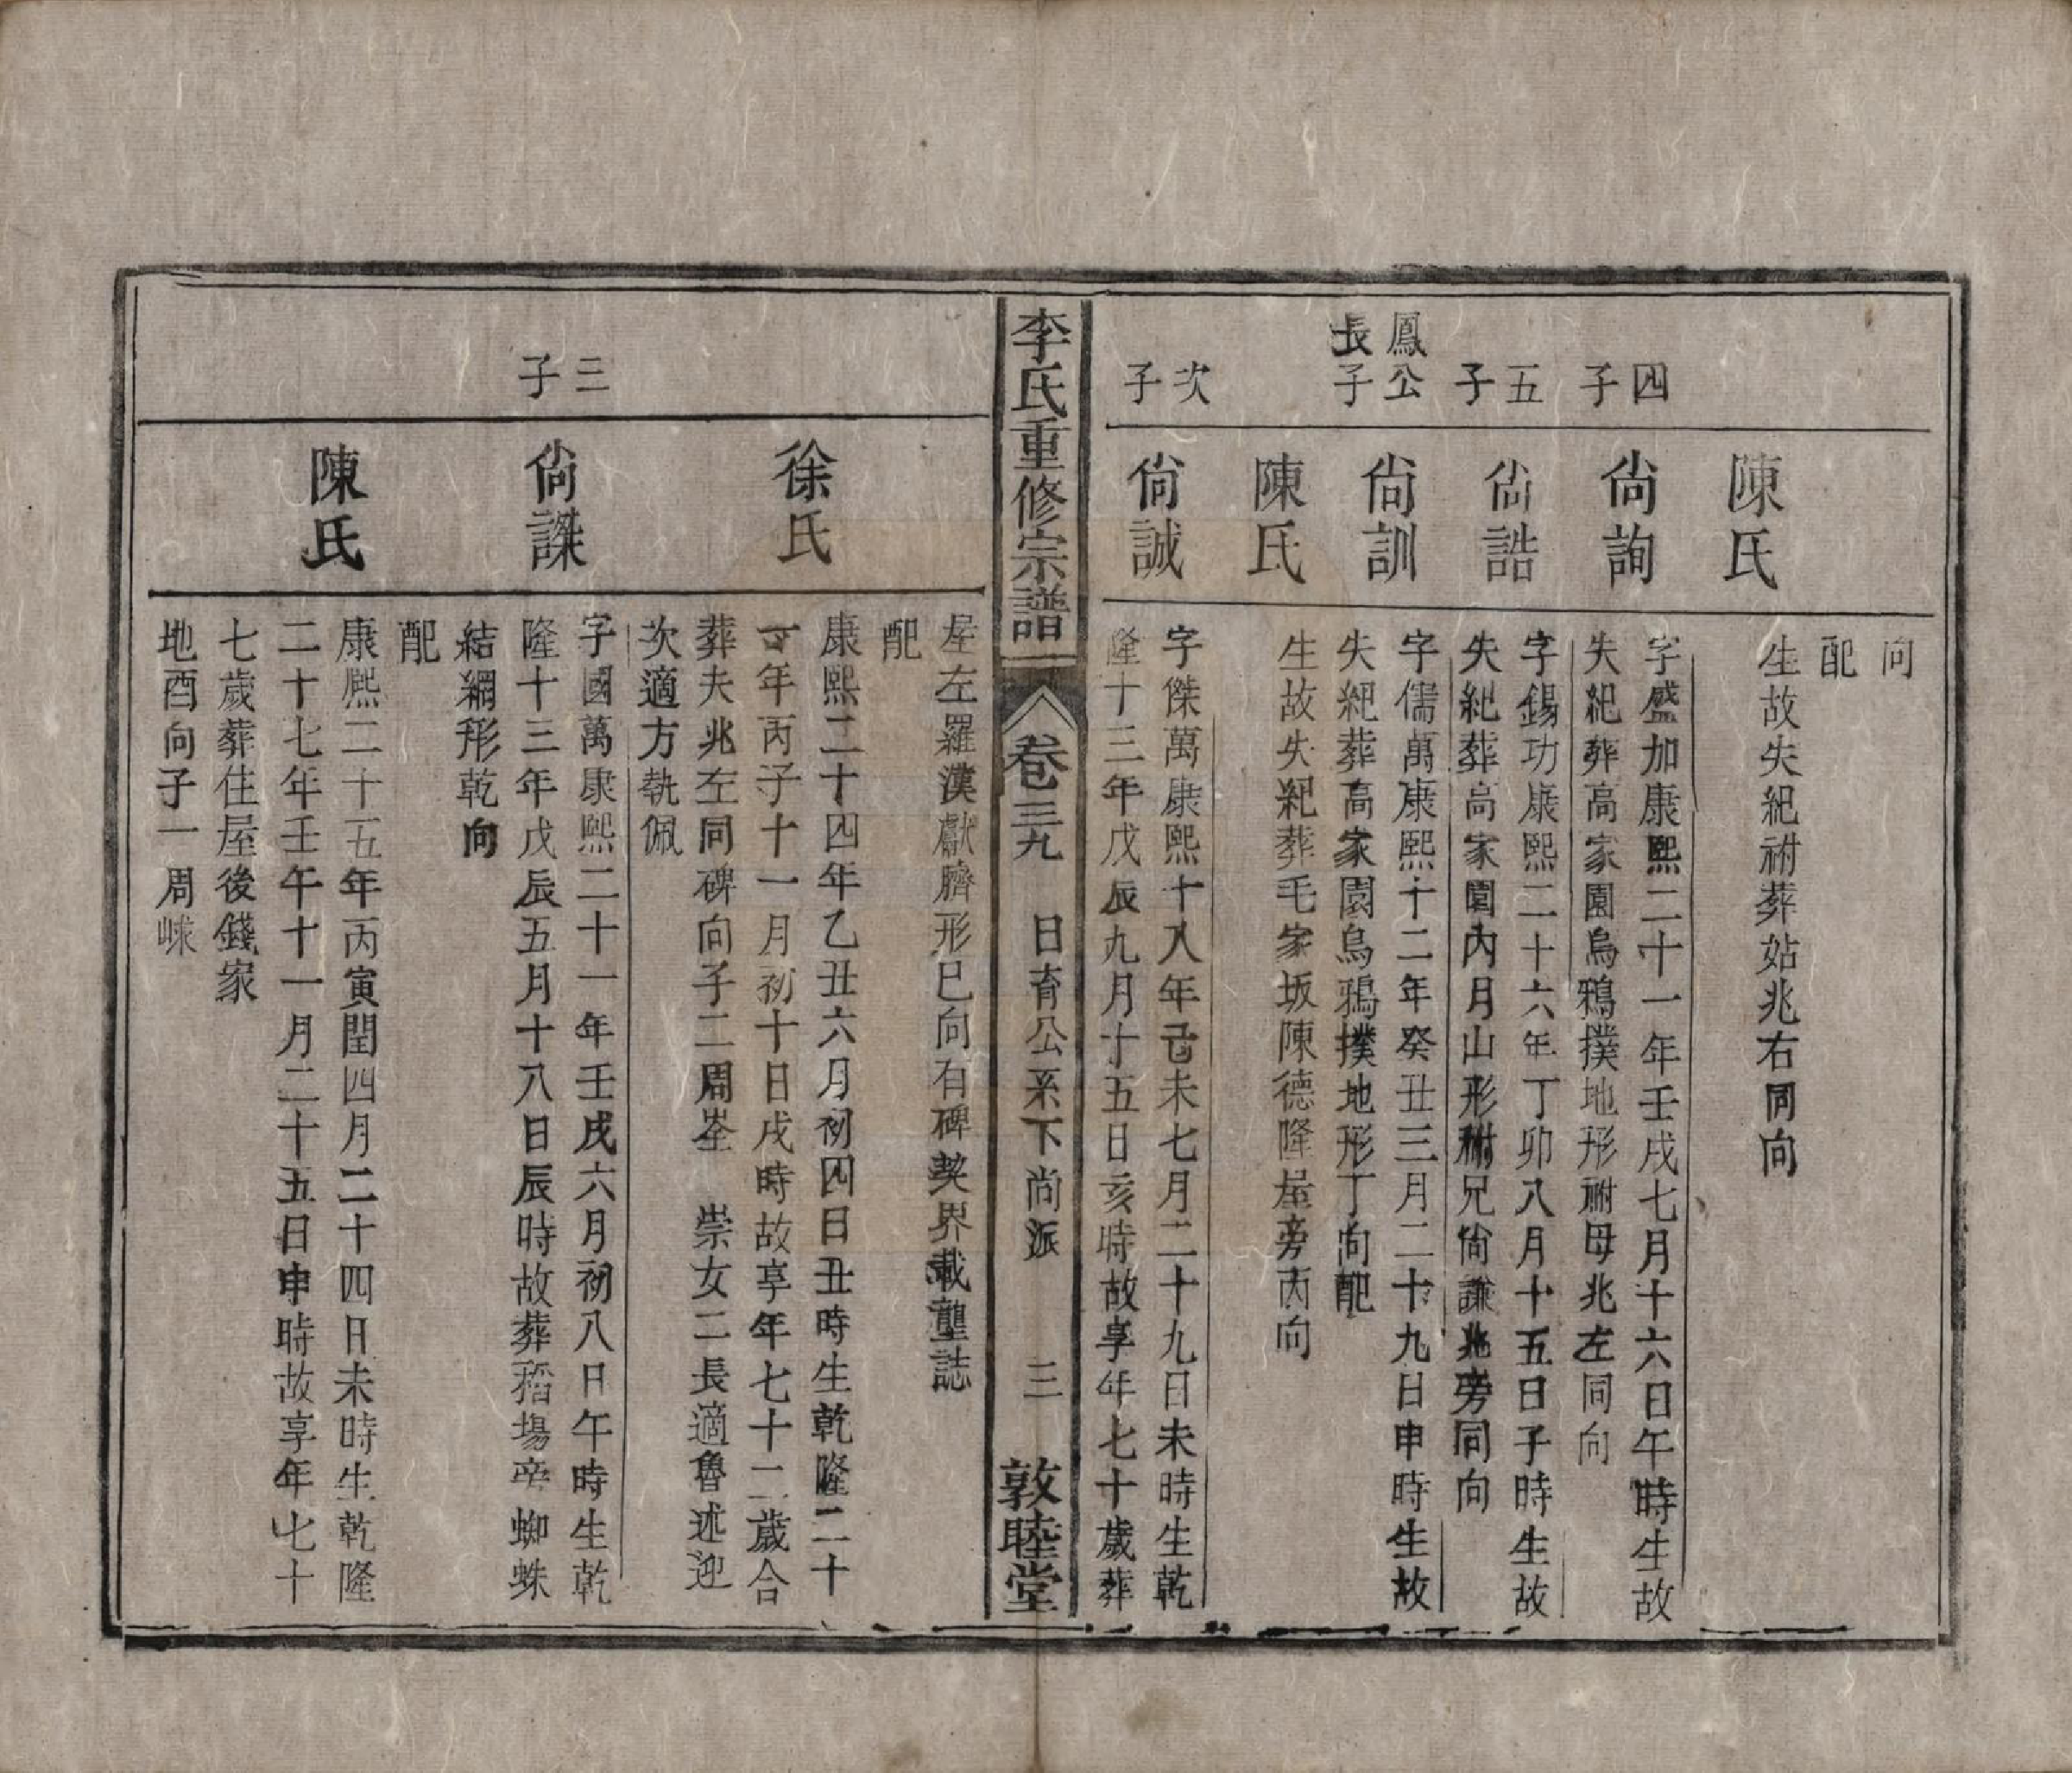 向
配
陳氏
生故失紀祔葬姑兆右同向
四子
尙詢
字盛加康熙二十一年壬戌七月十六日午時生故
失紀葬高家園烏鴉撲地形祔母兆左同向
五子
尙誥
字錫功康熙二十六年丁卯八月十五日子時生故
失紀葬高家園內月山形祔兄尙謙兆旁同向
鳳公長子
尙訓
字儒萬康熙十二年癸丑三月二十九日申時生故
失紀葬高家園烏鴉撲地形丁向配
陳氏
生故失紀葬毛家坂陳德隆屋旁丙向
次子
尙誠
字傑萬康熙十八年己未七月二十九日未時生乾
隆十三年戊辰九月十五日亥時故享年七十歲葬
李氏重修宗譜 卷三九 日育公系下尙派 三 敦睦堂
屋左羅漢獻臍形巳向有碑契界載塋誌
配
徐氏
康熙二十四年乙丑六月初四日丑時生乾隆二十
一年丙子十一月初十日戌時故享年七十二歲合
葬夫兆左同碑向子二周峑 崇女二長適魯述迎
次適方執佩
三子
尙謀
字國萬康熙二十一年壬戌六月初八日午時生乾
隆十三年戊辰五月十八日辰時故葬稻場 蜘蛛
結網形乾向
配
陳氏
康熙二十五年丙寅閏四月二十四日未時生乾隆
二十七年壬午十一月二十五日申時故享年七十
七歲葬住屋後錢家
地酉向子一周崍